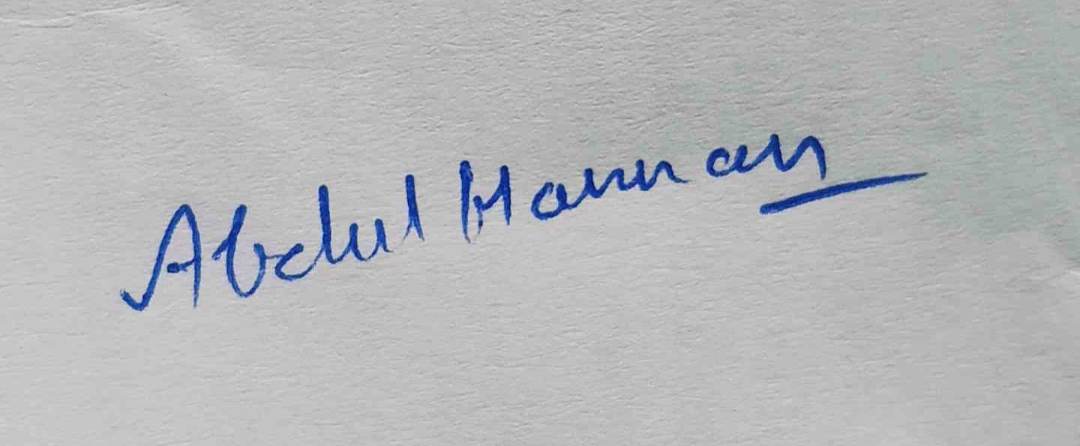 Abdul Hannan